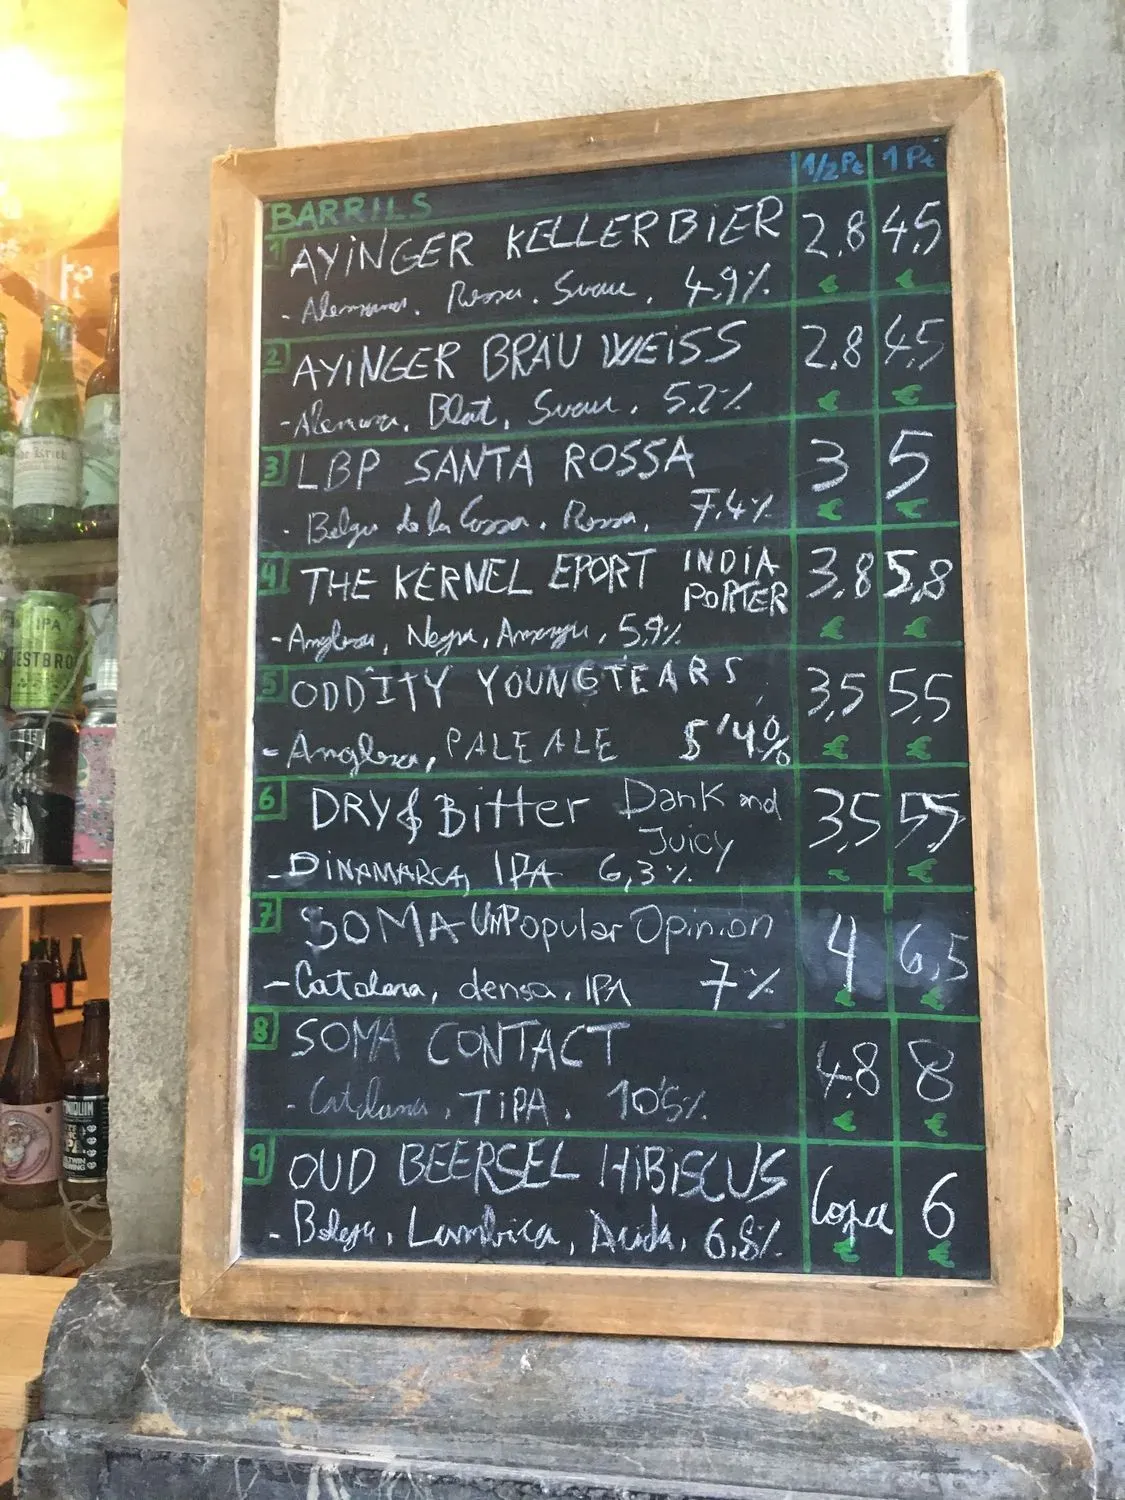 1/2 Pt 1 Pt
BARRILS
1 AYINGER KELLERBIER 2,8 € 4,5 €
- Alemana. Rossa. Suau. 4,9%
2 AYINGER BRAU WEISS 2,8 € 4,5 €
- Alemana, Blat, Suau. 5,2%
3 LBP SANTA ROSSA 3 € 5 €
- Belga de la Cossa. Rossa. 7,4%
4 THE KERNEL EPORT INDIA 3,8 € 5,8 €
PORTER
- Anglesa, Negra, Amarga, 5,9%
5 ODDITY YOUNG TEARS 3,5 € 5,5 €
- Anglesa, PALE ALE 5'4%
6 DRY & Bitter Dank and 3,5 € 5,5 €
Juicy
- DINAMARCA, IPA 6,3%
7 SOMA UnPopular Opinion 4 € 6,5 €
- Catalana, densa, IPA 7%
8 SOMA CONTACT 4,8 € 8 €
- Catalana, TIPA. 10'5%
9 OUD BEERSEL HIBISCUS Copa € 6 €
- Belga, Lambica, Acida, 6,8%
IPA